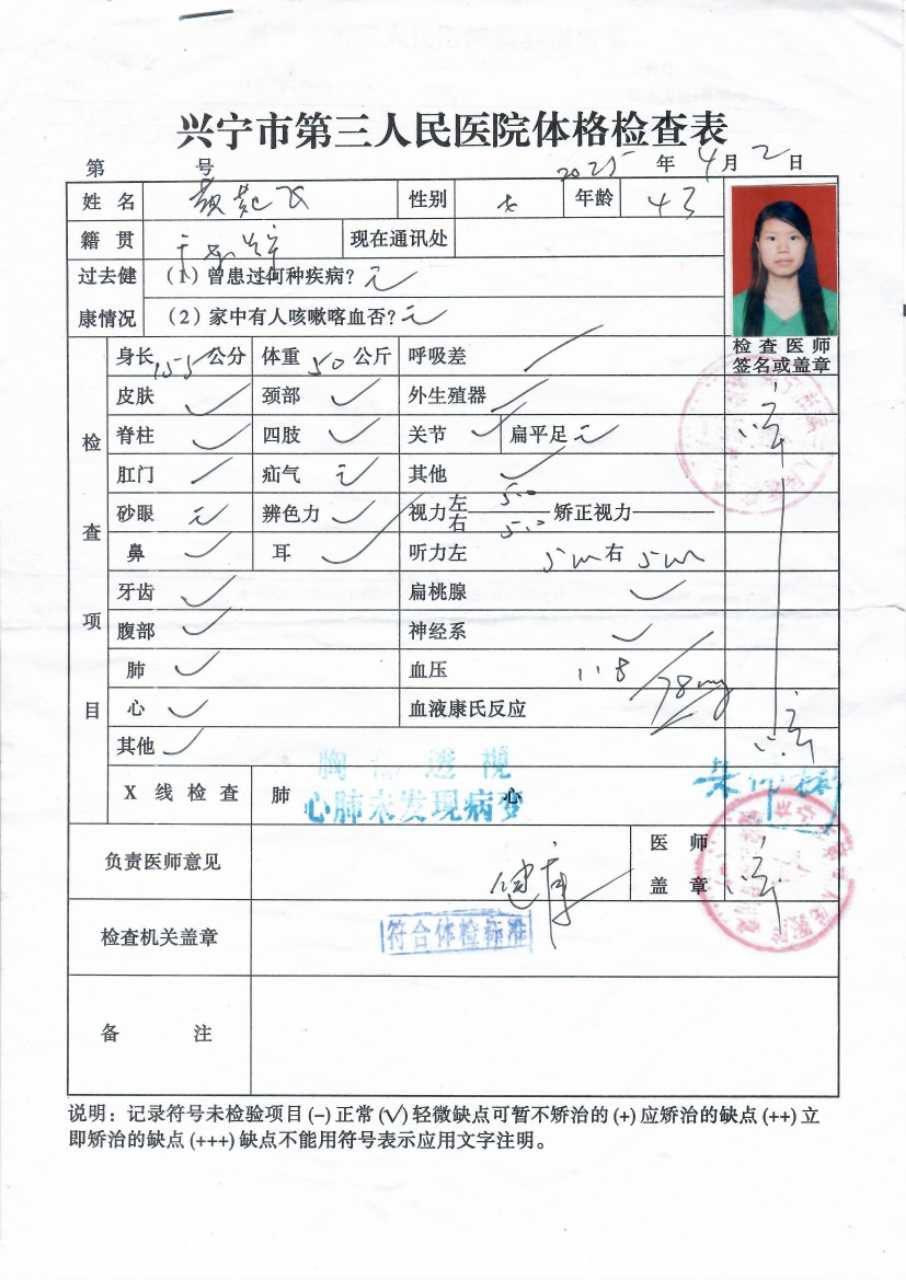 兴宁市第三人民医院体格检查表
第 号 2025年4月2日
姓名 性别 女 年龄 43
籍贯 现在通讯处
过去健康情况 (1)曾患过何种疾病?无
(2)家中有人咳嗽喀血否?无
检查医师签名或盖章
检查项目
身长155公分 体重50公斤 呼吸差 /
皮肤 ✓ 颈部 ✓ 外生殖器 /
脊柱 ✓ 四肢 ✓ 关节 ✓ 扁平足 无
肛门 / 疝气 无 其他 ✓
砂眼 无 辨色力 ✓ 视力 左 5.0 右 5.0 矫正视力
鼻 ✓ 耳 ✓ 听力左 5m 右 5m
牙齿 ✓ 扁桃腺 ✓
腹部 ✓ 神经系 ✓
肺 ✓ 血压 118/78
心 ✓ 血液康氏反应
其他 ✓
胸 透视
X线检查 肺 心
心肺未发现病变
负责医师意见 健康 医师盖章
检查机关盖章 符合体检标准
备注
说明:记录符号未检验项目(-)正常(√)轻微缺点可暂不矫治的(+)应矫治的缺点(++)立
即矫治的缺点(+++)缺点不能用符号表示应用文字注明。